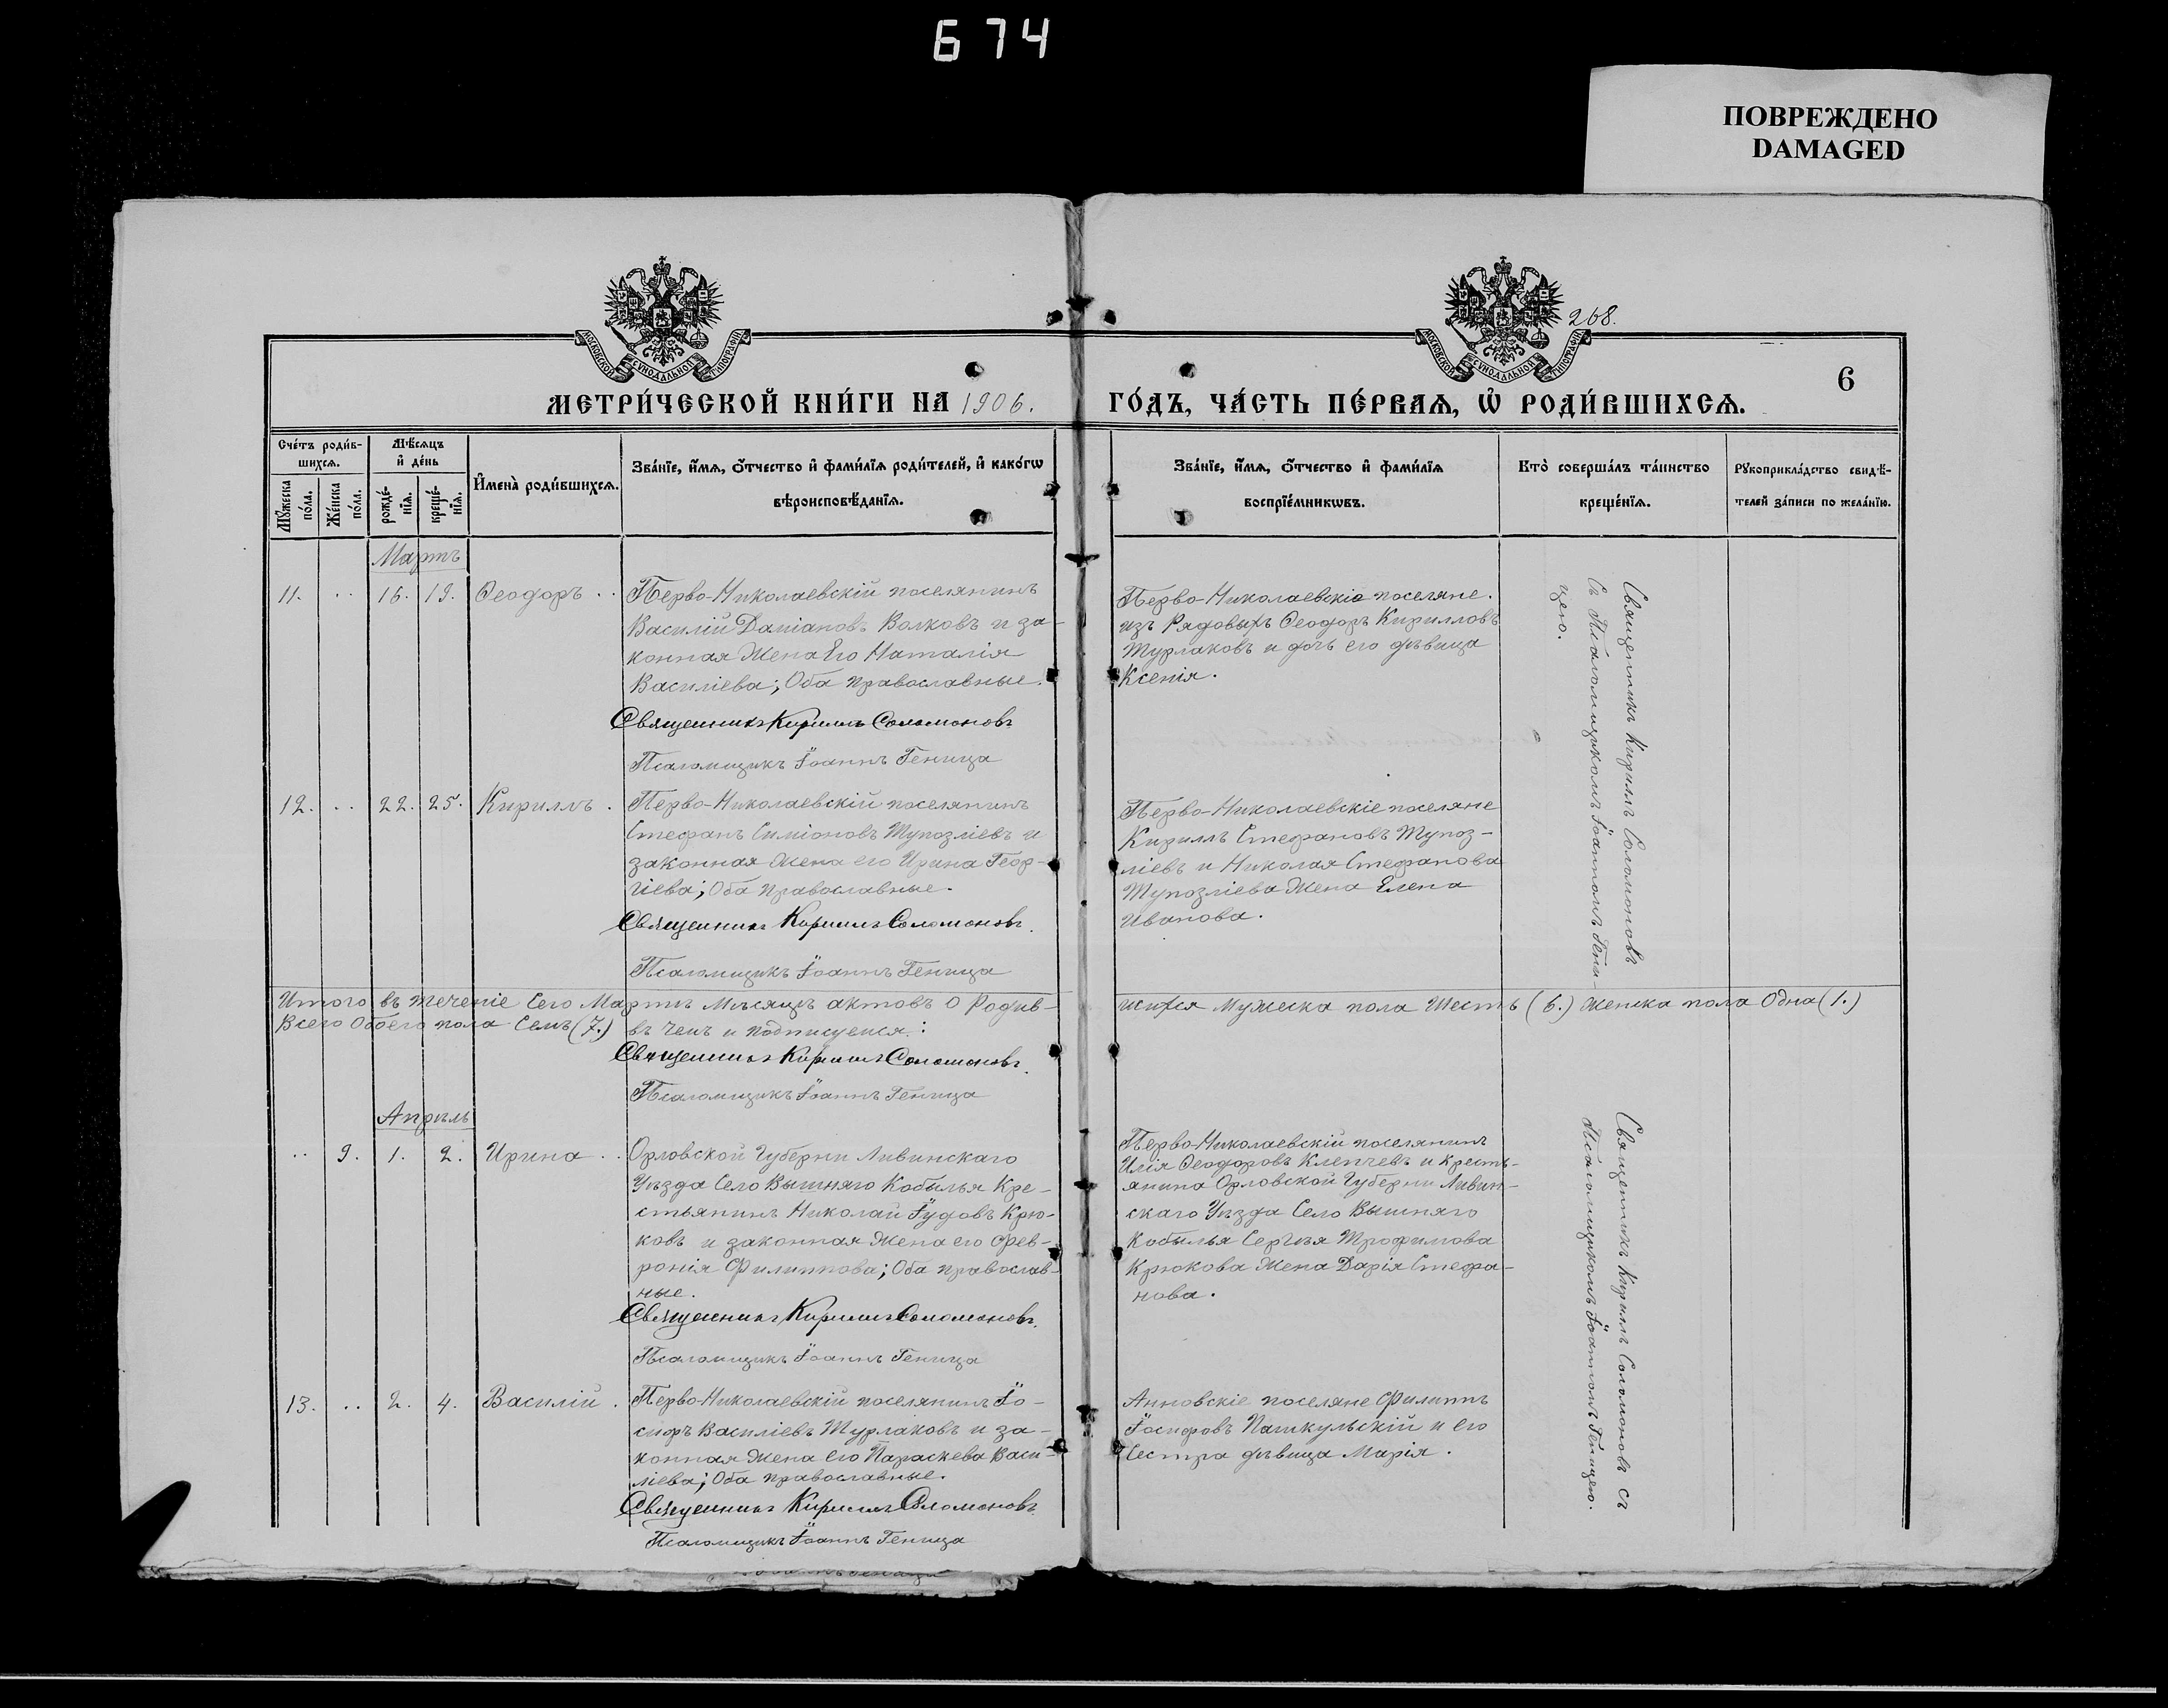 674
ПОВРЕЖДЕНО
DAMAGED
268.
МОСКОВСКОЙ СѴНОДАЛЬНОЙ ТИПОГРАФІИ
МОСКОВСКОЙ СѴНОДАЛЬНОЙ ТИПОГРАФІИ
6
МЕТРИ́ЧЕСКОЙ КНИ́ГИ НА 1906. ГО́ДЪ, ЧА́СТЬ ПЕ́РВАѦ, Ѽ РОДИ́ВШИХСѦ.
Сче́тъ роди́в-
шихсѧ.
Мѣ́сѧцъ
и҆ де́нь
Мꙋ́жеска
по́ла.
Же́нска
по́ла.
рожде́-
нїѧ.
креще́-
нїѧ.
И҆мена̀ роди́вшихсѧ.
Зва́нїе, и҆́мѧ, ѻ҆́тчество и҆ фами́лїѧ роди́телей, и҆ како́гѡ
вѣроисповѣ́данїѧ.
Зва́нїе, и҆́мѧ, ѻ҆́тчество и҆ фами́лїѧ
воспрїе́мникѡвъ.
Кто̀ соверша́лъ та́инство
креще́нїѧ.
Рꙋкоприкла́дство свидѣ́-
телей за́писи по жела́нїю.
Мартъ
11. .. 16. 19. Ѳеодоръ . .
Перво-Николаевскій поселянинъ
Василій Даміановъ Волковъ и за-
конная Жена Его Наталія
Василіева; Оба православные.
Священникъ Кириллъ Соломоновъ
Псаломщикъ Іоаннъ Геница
Перво-Николаевскіе поселяне.
изъ Рядовыхъ Ѳеодоръ Кирилловъ
Турлаковъ и дочь его дѣвица
Ксенія.
Священникъ Кириллъ Соломоновъ
съ Псаломщикомъ Іоанномъ Гени-
цею.
12. .. 22. 25. Кириллъ .
Перво-Николаевскій поселянинъ
Стефанъ Симіоновъ Тупозліевъ и
законная Жена его Ирина Геор-
гіева; Оба православные.
Священникъ Кириллъ Соломоновъ.
Псаломщикъ Іоаннъ Геница
Перво-Николаевскіе поселяне
Кириллъ Стефановъ Тупоз-
ліевъ и Николая Стефанова
Тупозліева Жена Елена
Иванова.
Итого въ теченіе Сего Мартъ Мѣсяцъ актовъ О Родив-шихся Мужеска пола Шесть (6.) Женска пола Одна (1.)
Всего Обоего пола Семь (7.) въ Чемъ и подписуемся:
Священникъ Кириллъ Соломоновъ.
Псаломщикъ Іоаннъ Геница
Апрѣль
.. 9. 1. 2. Ирина . .
Орловской Губерни Ливинскаго
Уѣзда Село Вышняго Кобылья Кре-
стьянинъ Николай Іудовъ Крю-
ковъ и законная Жена его Фев-
ронія Филиппова; Оба православ-
ные.
Священникъ Кириллъ Соломоновъ.
Псаломщикъ Іоаннъ Геница
Перво-Николаевскій поселянинъ
Илія Ѳеодоровъ Клепчевъ и кресть-
янина Орловской Губерни Ливин-
скаго Уѣзда Село Вышняго
Кобылья Сергѣя Трофимова
Крюкова Жена Дарія Стефа-
нова.
Священникъ Кириллъ Соломоновъ съ
Псаломщикомъ Іоанномъ Геницею.
13. .. 2. 4. Василій .
Перво-Николаевскій поселянинъ Іо-
сифъ Василіевъ Турлаковъ и за-
конная Жена его Параскева Васи-
ліева; Оба православные.
Священникъ Кириллъ Соломоновъ
Псаломщикъ Іоаннъ Геница
Анновскіе поселяне Филиппъ
Іосифовъ Пашкульскій и его
Сестра дѣвица Марія.